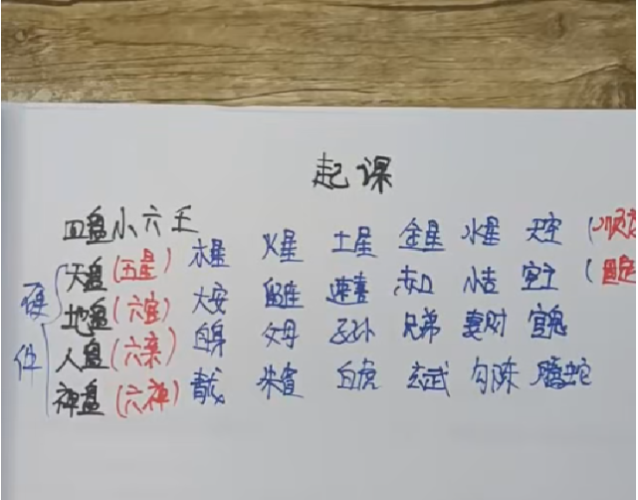 起课
四盘小六壬
硬件
天盘(五星) 木星 火星 土星 金星 水星 天空 (顺
地盘(六宫) 大安 留连 速喜 赤口 小吉 空亡 (固定
人盘(六亲) 自身 父母 子孙 兄弟 妻财 官鬼
神盘(六神) 青龙 朱雀 白虎 玄武 勾陈 螣蛇